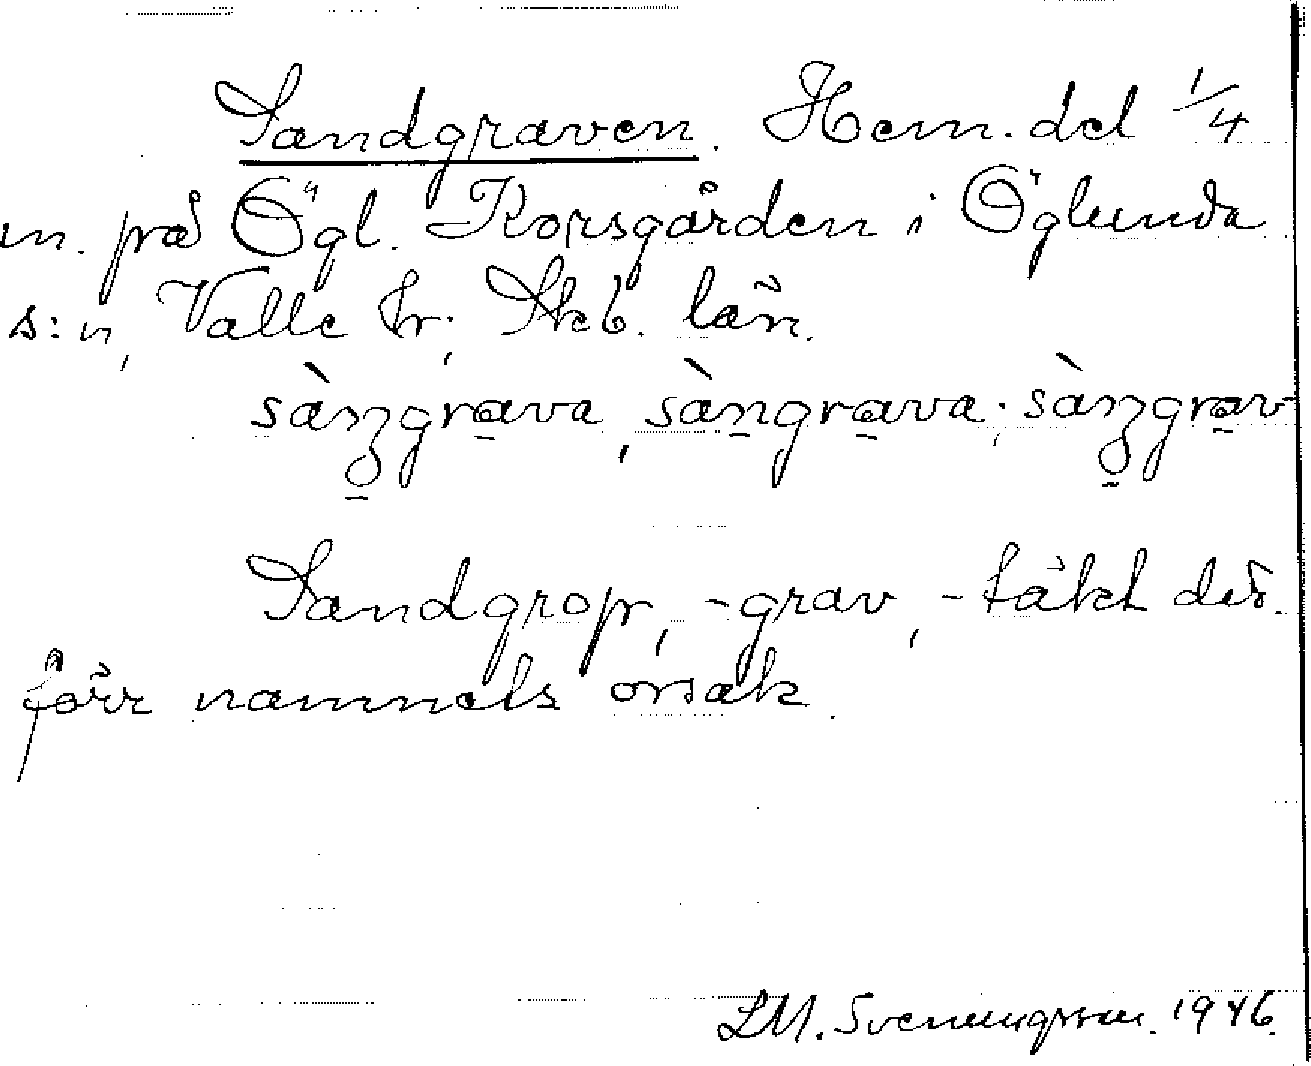 Sandgraven. Hem. del 1/4
m. på Ögl. Korsgården i Öglunda
s:n, Valle hr; Skb. län.
sàŋgrava, sàngrava; sàŋgrav-
Sandgrop, -grav, -täkt des.
förr namnets orsak.
LM. Svenungsson. 1946.